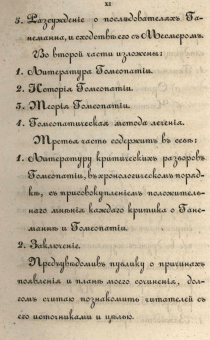 XI
5. Разсужденіе о послѣдователяхъ Га-
неманна, и сходствѣ его съ Месмеромъ.
Во второй части изложены:
1. Литература Гомеопатіи.
2. Исторія Гомеопатіи.
3. Теорія Гомеопатіи.
4. Гомеопатическая метода леченія.
Третья часть содержитъ въ себѣ:
1. Литературу критическихъ разборовъ
Гомеопатіи, въ хронологическомъ поряд-
кѣ, съ присовокупленіемъ положитель-
наго мнѣнія каждаго критика о Гане-
маннѣ и Гомеопатіи.
2. Заключеніе.
Предувѣдомивъ публику о причинахъ
появленія и планѣ моего сочиненія, дол-
гомъ считаю познакомить читателей съ
его источниками и цѣлью.